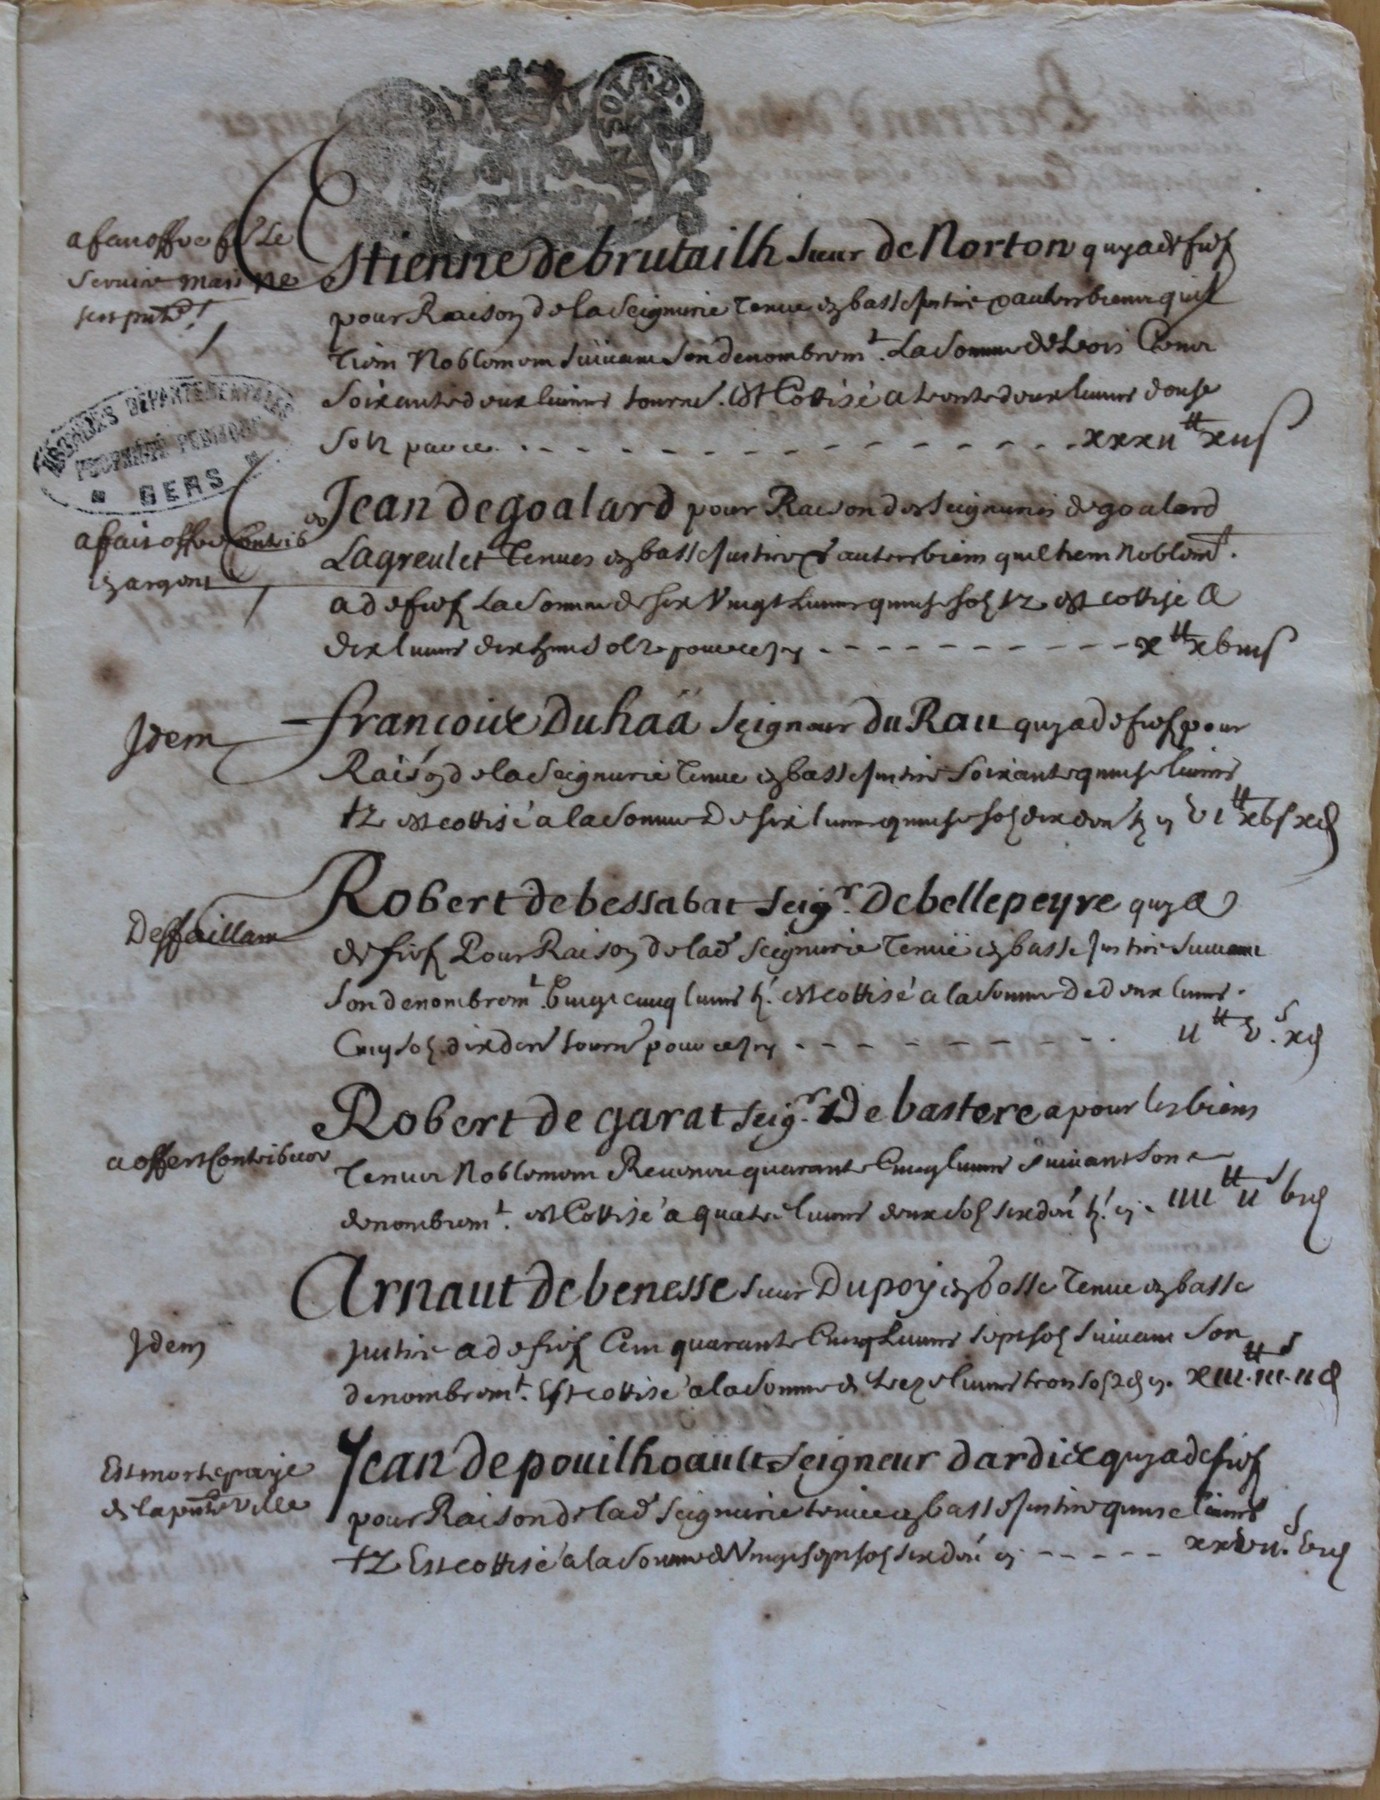 UN SOL LA D.
a fait offre fe. Le
service mais ne
sest pnte!
Estienne de brutailh sieur de Norton quy a de fief
pour Raison de la Seignurie Tenue en basse Justice & autres biens quil
Tien Noblement suivant son denombremt. La somme de trois Cens
soixante deux livres tourns. est Cottisé a trente deux livres douse
solz pauce. - - - xxxii tt xii s
ARCHIVES DEPARTEMENTALES
PROPRIÉTÉ PUBLIQUE
GERS
a fait offre Contrib
en argent
Jean de goalard pour Raison des Seignuries de goalard
Lagreulet Tenues en basse Justice & autres biens quil tiem Noblemt.
a de fief La somme de six Vingt Livres quinse solz tz est cottisé a
dix livres dix huit solz pour cecy - - - x tt xbiii s
Idem
françoix Du haä Seigneur du Rau quy a de fief pour
Raison de la Seignurie Tenue en basse Justice Soixante quinse livres
tz est cottisé a la somme de six livres quinse solz dix den tz cy vi tt xb s x d
Deffaillant
Robert de bessabat Seigr. De bellepeyre quy a
de fief Pour Raison de lad. Seignurie Tenuë en basse Justice suivant
son denombremt. Vingt cinq livres tz. est cottisé a la somme de deux livres
Cinq solz dix den tourns pour cecy - - - ii tt v s x d
a offert Contribuer
Robert de garat seigr. De bastere a pour les biens
Tenus Noblement Revenu quarante Cinq livres suivant son
denombremt. est Cottisé a quatre livres deux solz six den tz. cy. iiii tt ii s bi d
Idem
Arnaut de benesse sieur Dupoy en Josse Tenue en basse
Justice a de fief Cent quarante Cinq Livres sept solz suivant son
denombremt. Est cottisé a la somme de treze livres trois solz 2 d cy. xiii tt iii s ii d
Est morte paye
de la pnte Ville
Jean de pouilhoault Seigneur dardice quy a de fief
pour Raison de lad. Seignurie tenue en basse Justice quinse livres
tz Est cottisé a la somme de Vingt sept solz six den cy - - - xxvii s vi d